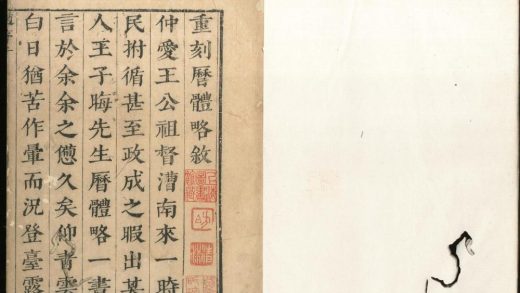 重刻曆體略敘
仲愛王公祖督漕南來一時
民拊循甚至政成之暇出其
人王子晦先生曆體略一書
言於余余之憊久矣仰青雲
白日猶苦作暈而況登臺露